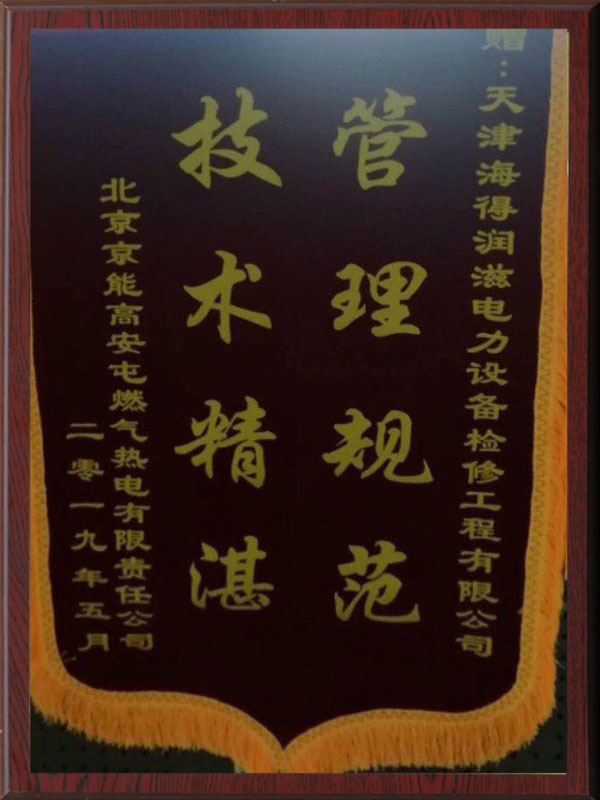 赠：天津海得润滋电力设备检修工程有限公司
管理规范
技术精湛
北京京能高安屯燃气热电有限责任公司
二零一九年五月